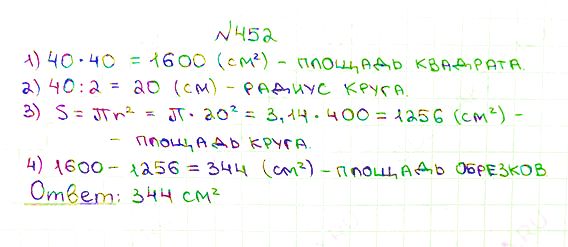 №452
1) 40·40 = 1600 (см²) - площадь квадрата.
2) 40:2 = 20 (см) - радиус круга.
3) S = πr² = π·20² = 3,14·400 = 1256 (см²) -
- площадь круга.
4) 1600 - 1256 = 344 (см²) - площадь обрезков
Ответ: 344 см²